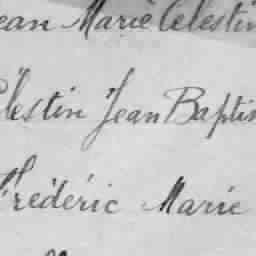 Jean Marie Célestin
Célestin Jean Baptis
Frédéric Marie